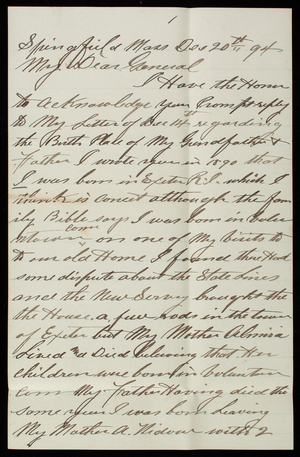 1
Springfield Mass Dec 20th, 94
My Dear General
I Have the Honor
to acknowledge your prompt reply
to My Letter of Dec 14th regarding
the Birth Place of My Grandfather &
Father I wrote you in 1890 that
I was born in Exeter R.I. which I
think is correct although the fam
ily Bible says I was born in Volun
town Conn on one of My visits to
our old Home I found there Had
some dispute about the State Lines
and the New Survey brought the
the House a few rods in the town
of Exeter but My Mother
Lived and Died believing that Her
children were born in Voluntown
Conn My Father Having died the
same year I was born Leaving
My Mother A Widow with 2